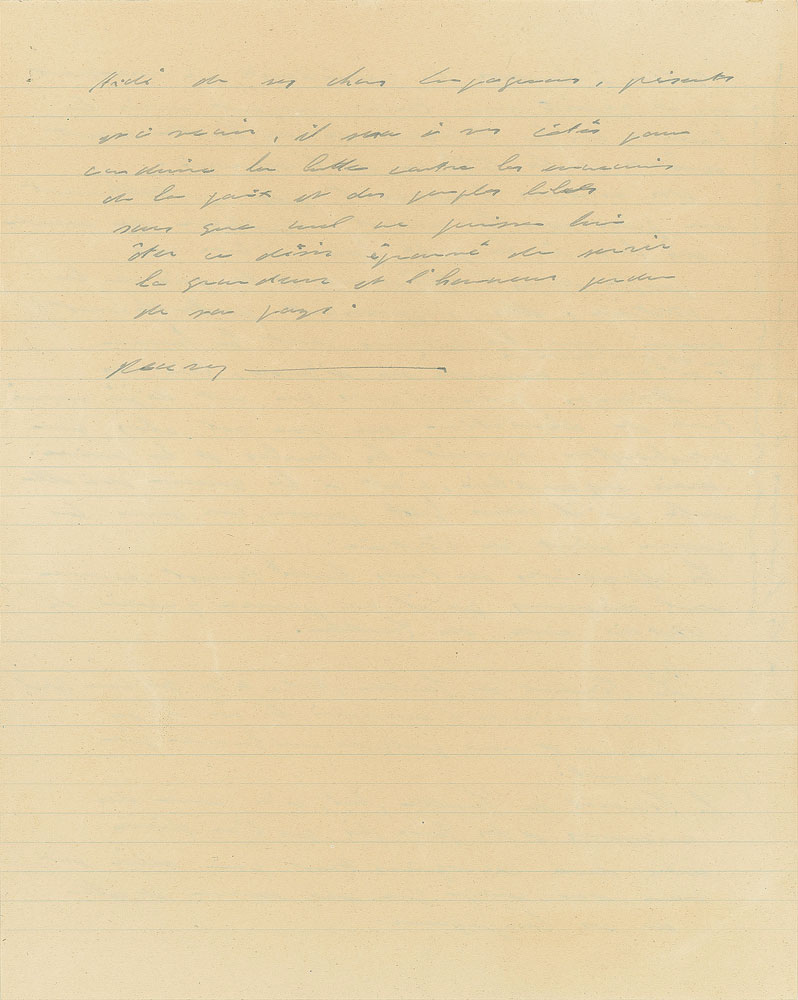 Aidé de ses chers compagnons, présents
et à venir, il sera à vos côtés pour
conduire la lutte contre les ennemis
de la paix et des peuples libres
sans que nul ne puisse lui
ôter ce désir éprouvé de servir
la grandeur et l'honneur perdu
de son pays.